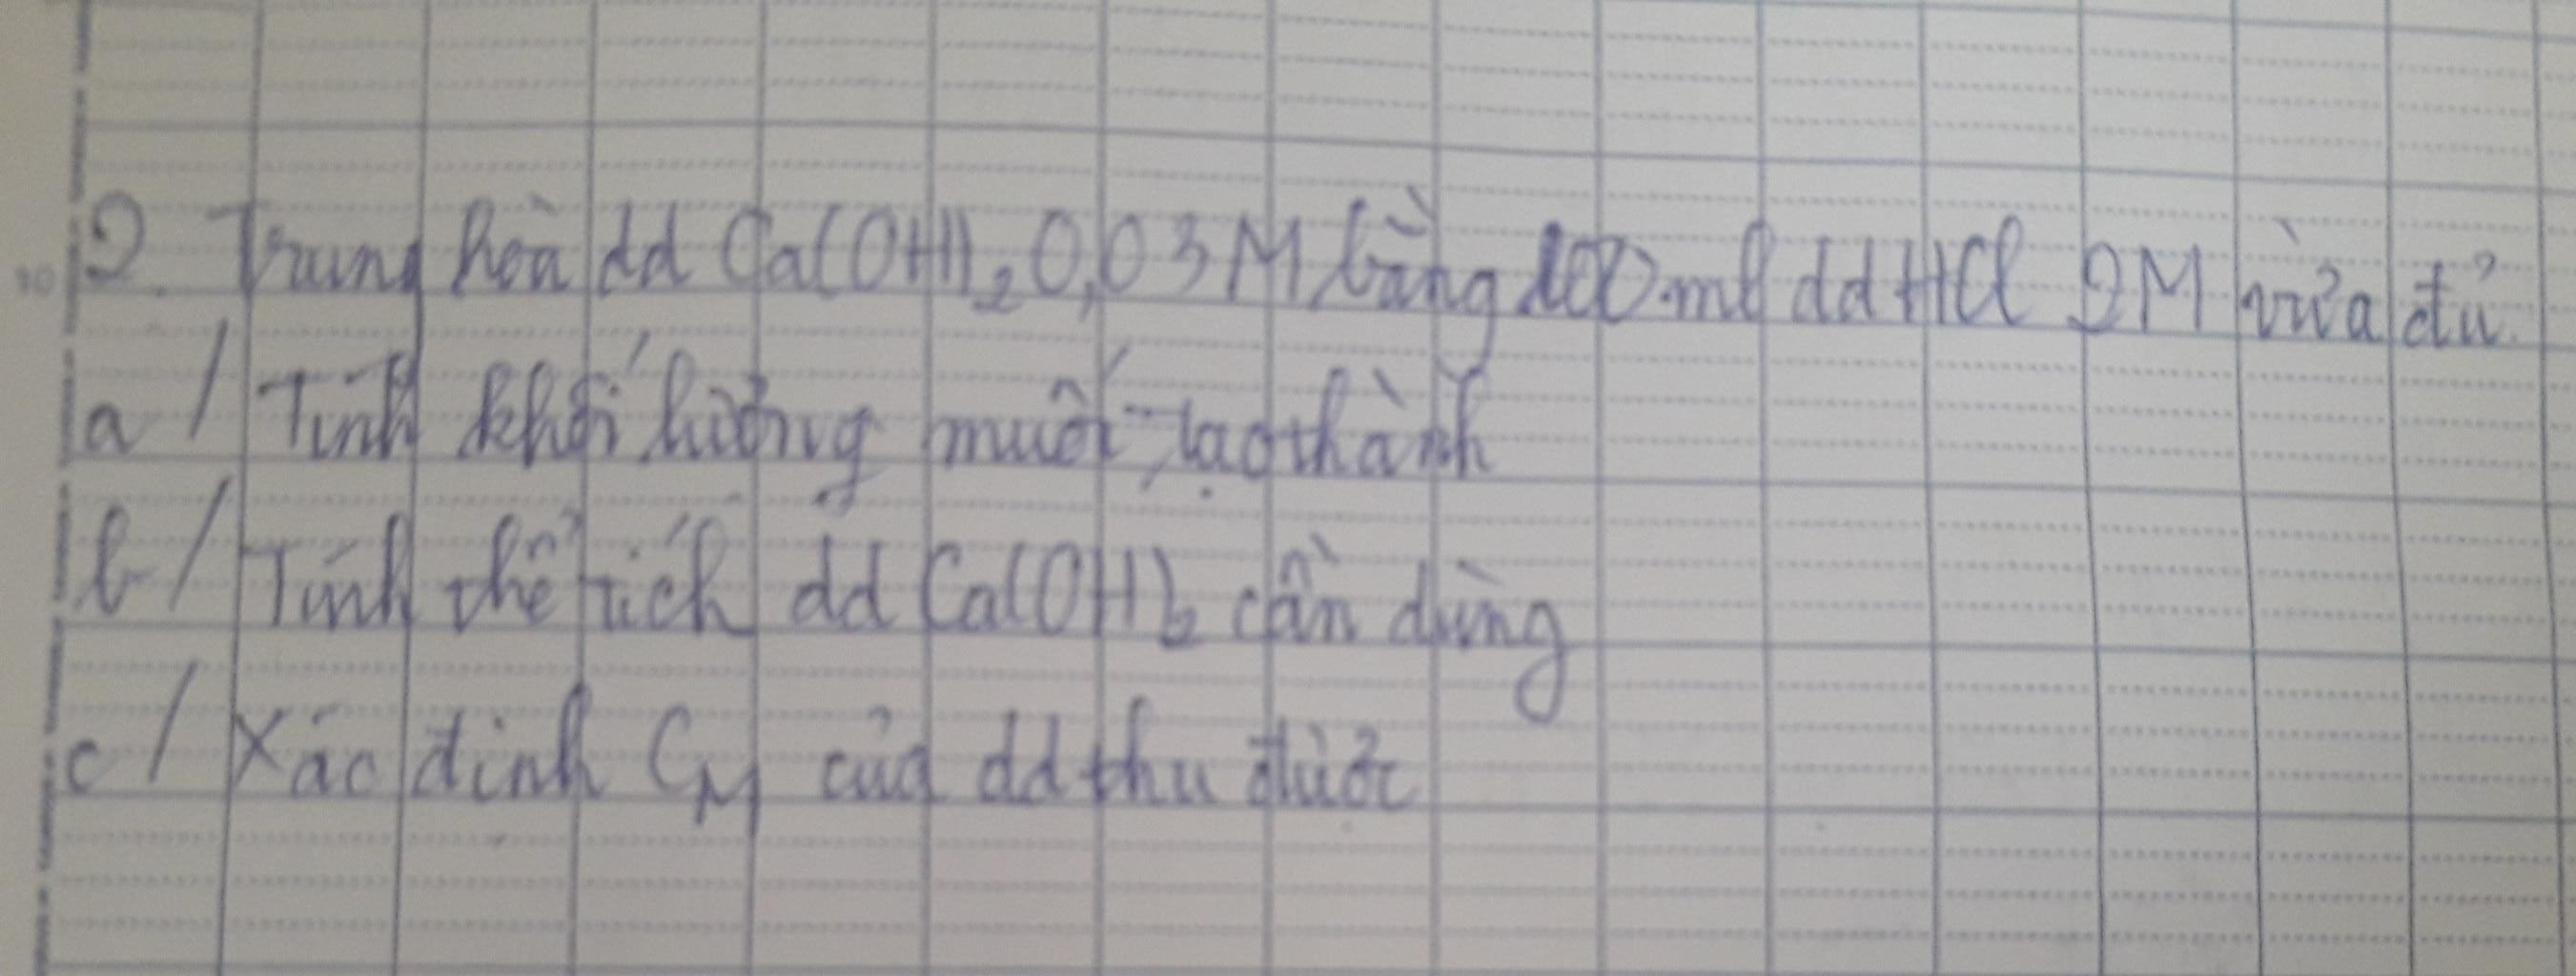 2. Trung hòa dd Ca(OH)₂ 0,03M bằng 100 ml dd HCl 2M vừa đủ.
a/ Tính khối lượng muối tạo thành
b/ Tính thể tích dd Ca(OH)₂ cần dùng
c/ Xác định CM của dd thu được